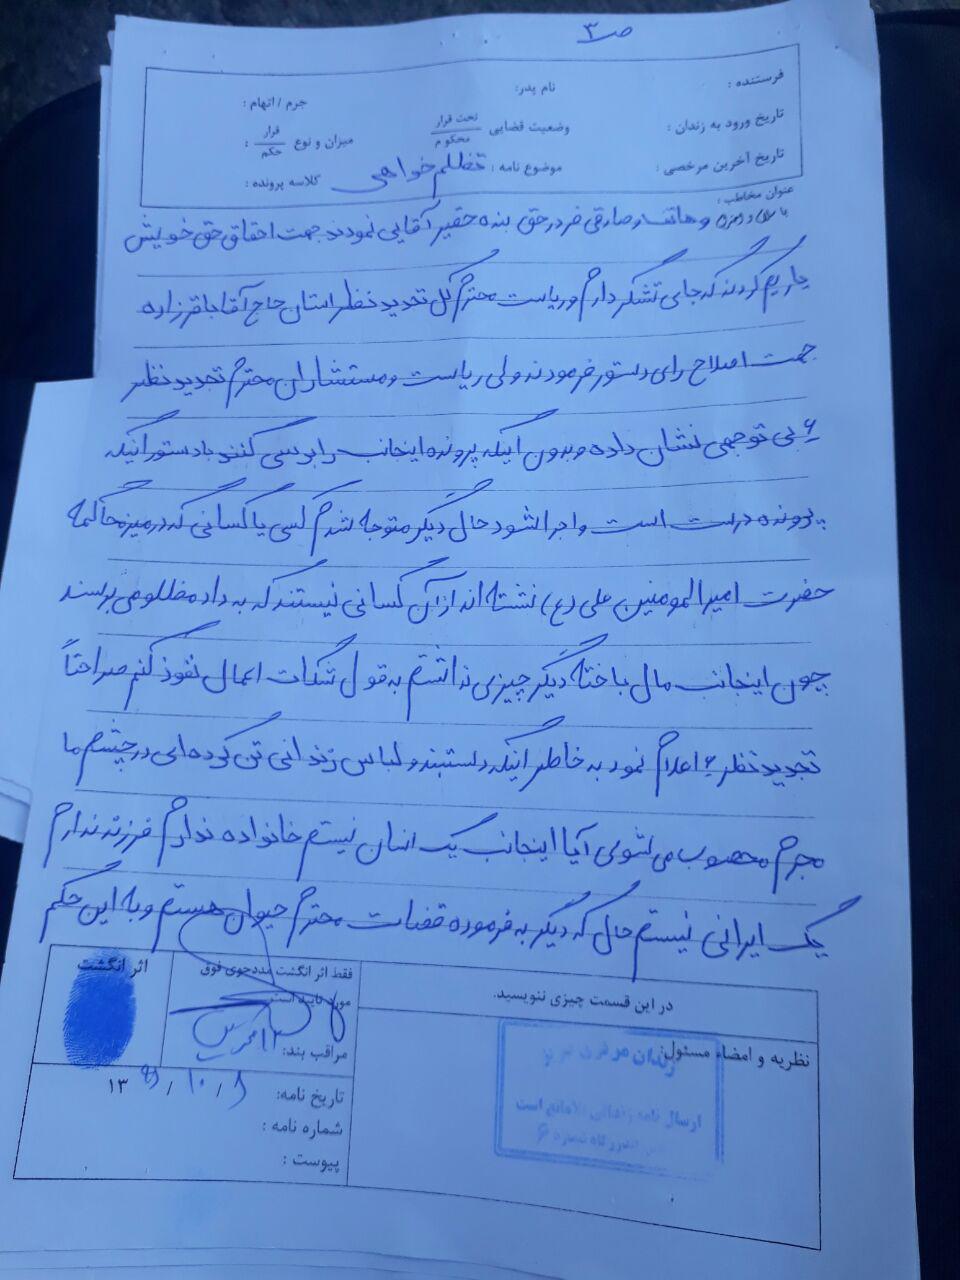 ص ۳
فرستنده :
نام پدر:
جرم / اتهام :
تاریخ ورود به زندان :
وضعیت قضایی تحت قرار محکوم
میزان و نوع قرار حکم :
تاریخ آخرین مرخصی :
موضوع نامه : تظلم خواهی
کلاسه پرونده :
عنوان مخاطب :
با سلام و احترام و صادقی فر در حق بنده حقیر آقایی نمودند جهت احقاق حق خویش
یاریم کردند که جای تشکر دارم و ریاست محترم کل تجدید نظر استان حاج آقا باقرزاده
جهت اصلاح رای دستور فرمودند ولی ریاست و مستشاران محترم تجدید نظر
۶ بی توجهی نشان داده و بدون اینکه پرونده اینجانب را بررسی کنند با دستور اینکه
پرونده درست است و اجرا شود حال دیگر متوجه شدم کسی یا کسانی که در میز محاکمه
حضرت امیرالمومنین علی (ع) نشسته اند از آن کسانی نیستند که به داد مظلومی برسند
چون اینجانب مال باخته دیگر چیزی نداشتم به قول شکات اعمال نفوذ کنم صراحتاً
تجدید نظر ۶ اعلام نمود به خاطر اینکه دستبند و لباس زندانی تن کرده‌ای در چشم ما
مجرم محصوب می شوی آیا اینجانب یک انسان نیستم خانواده ندارم فرزند ندارم
یک ایرانی نیستم حال که دیگر به فرموده قضات محترم حیوان هستم و به این حکم
در این قسمت چیزی ننویسید.
فقط اثر انگشت مددجوی فوق
مورد تایید است.
اثر انگشت
مراقب بند:
نظریه و امضاء مسئول:
زندان مرکزی
ارسال نامه زندانی بلامانع است
تاریخ نامه: ۸ / ۱۰ / ۱۳۹۶
شماره نامه :
پیوست :